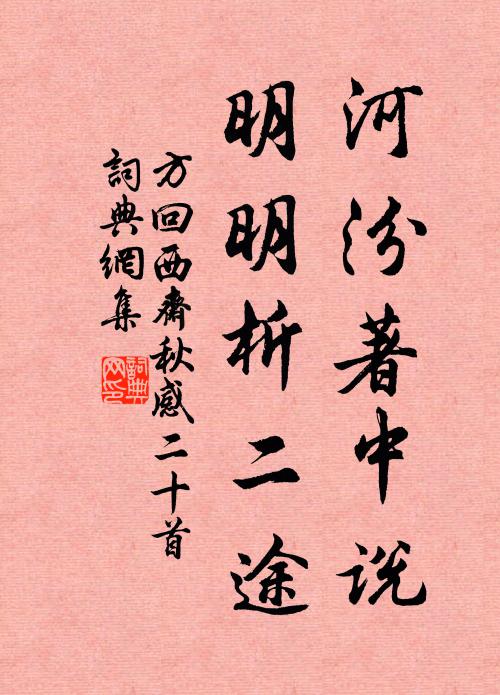 河汾著中说
明明析二途
方回西齋秋感二十首
詞典網集
詞典
网印